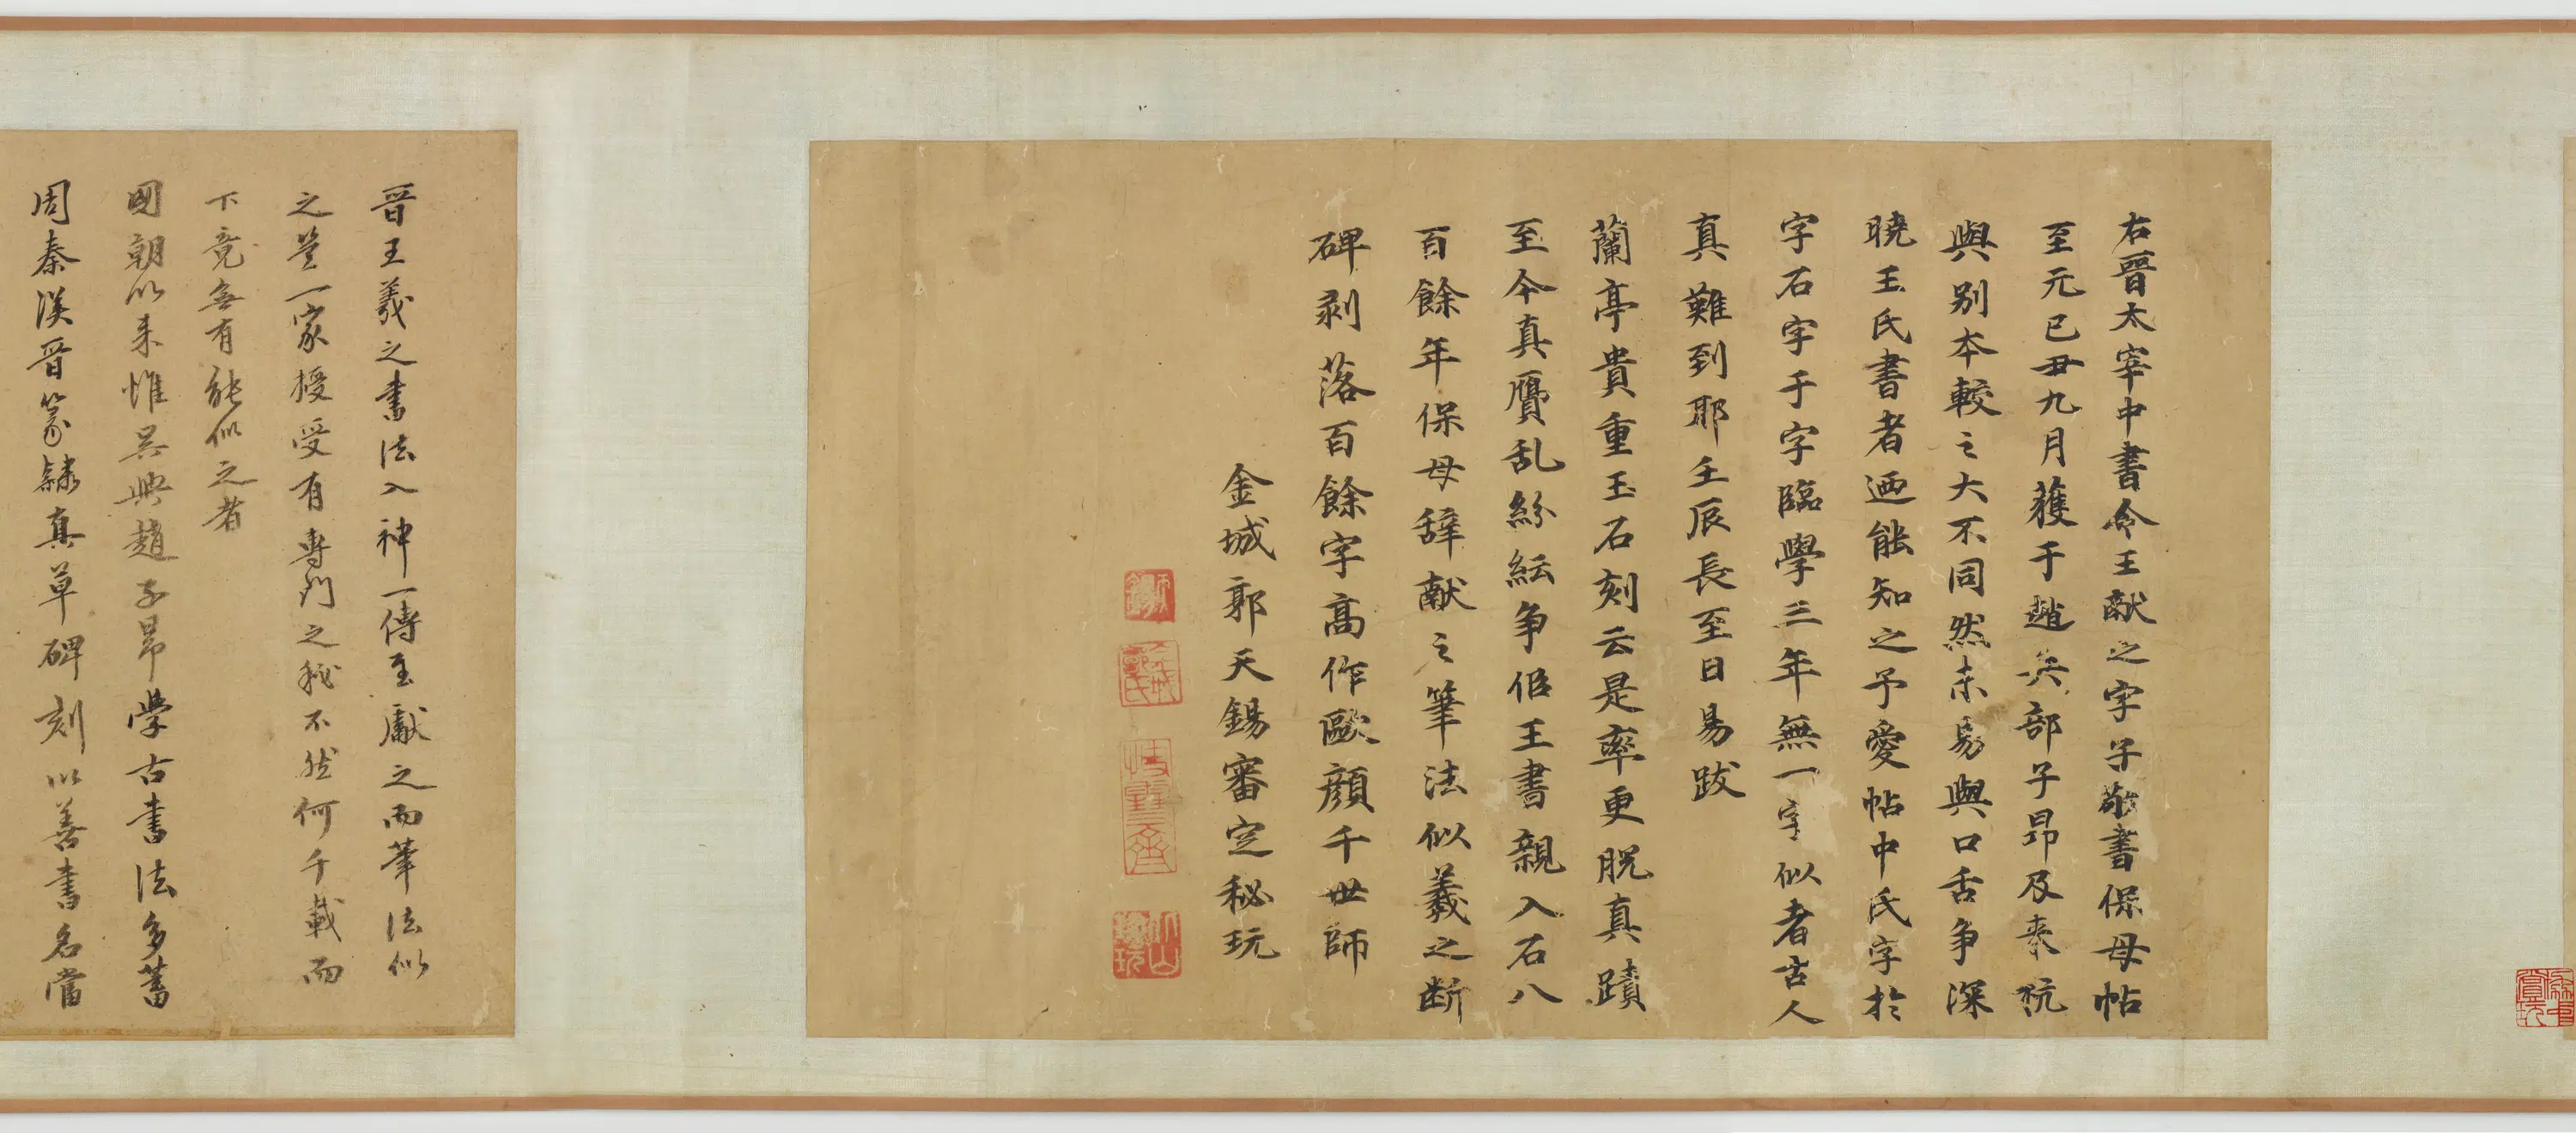 右晉太宰中書令王献之字子敬書保母帖
至元己丑九月獲于趙兵部子昂及来杭
與别本較之大不同然未易與口舌争深
曉王氏書者廼能知之予愛帖中氏字於
字石字千字臨學三年無一字似者古人
真難到耶壬辰長至日易跋
蘭亭貴重玉石刻云是率更脱真蹟
至今真贋乱紛紜争侣王書親入石八
百餘年保母辞献之筆法似羲之断
碑剥落百餘字高作歐顔千世師
金城郭天錫審定秘玩
晋王羲之書法入神一傳至獻之而筆法似
之葢一家授受有專門之秘不然何千載而
下竟無有能似之者
國朝以来惟吳興趙子昂學古書法多蓄
周秦漢晉篆隸真草碑刻以善書名當